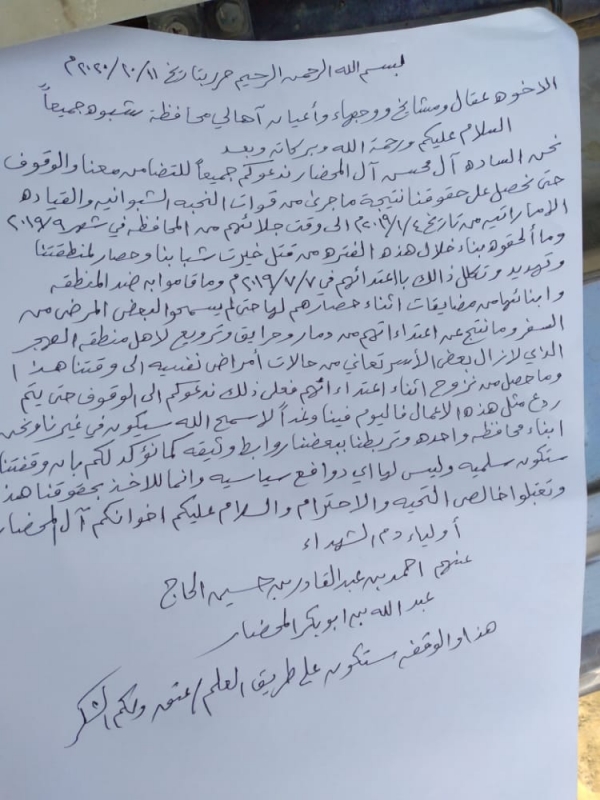 بسم الله الرحمن الرحيم حرر بتاريخ ٢٠٢٠/٢٠/١١م
الاخوه عقال ومشائخ ووجهاء وأعيان آهالي محافظة شبوه جميعاً
السلام عليكم ورحمة الله وبركاته وبعد
نحن الساده آل محسن آل المحضار ندعوكم جميعاً للتضامن معنا والوقوف
حتى نحصل على حقوقنا نتيجة ما جرى من قوات النخبه الشبوانيه والقياده
الاماراتيه من تاريخ ٢٠١٩/١/٤م الى وقت جلائهم من المحافظه في شهر ٢٠١٩/٩
وما ألحقوه بنا خلال هذه الفتره من قتل خيرت شبابنا وحصار لمنطقتنا
وتهديد وتكلل ذالك بااعتدائهم في ٢٠١٩/٧/٧م وما قاموا به ضد المنطقه
وابنائها من مضايقات اثناء حصارهم لها حتى لم يسمحوا لبعض المرضى من
السفر وما نتج عن اعتداءاتهم من دمار وحرايق وترويع لاهل منطقه الهجر
الذي لازال بعض الأسر تعاني من حالات أمراض نفسيه الى وقتنا هذا
وما حصل من نزوح اثناء اعتداءاتهم فعلى ذلك ندعوكم الى الوقوف حتى يتم
ردع مثل هذه الاعمال فاليوم فينا وغداً لاسمح الله سيكون في غيرنا ونحن
ابناء محافظه واحده وتربطنا ببعضنا روابط وثيقه كما نؤكد لكم بان وقفتنا
ستكون سلميه وليس لها اي دوافع سياسيه وانما للاخذ بحقوقنا هذ
وتقبلوا خالص التحيه والاحترام والسلام عليكم اخوانكم آل المحضار
أولياء دم الشهداء
عنهم احمد بن عبدالقادر بن حسين الحاج
عبدالله بن ابوبكر المحضار
هذا والوقفه ستكون على طريق العلم / عتق ولكم الشكر